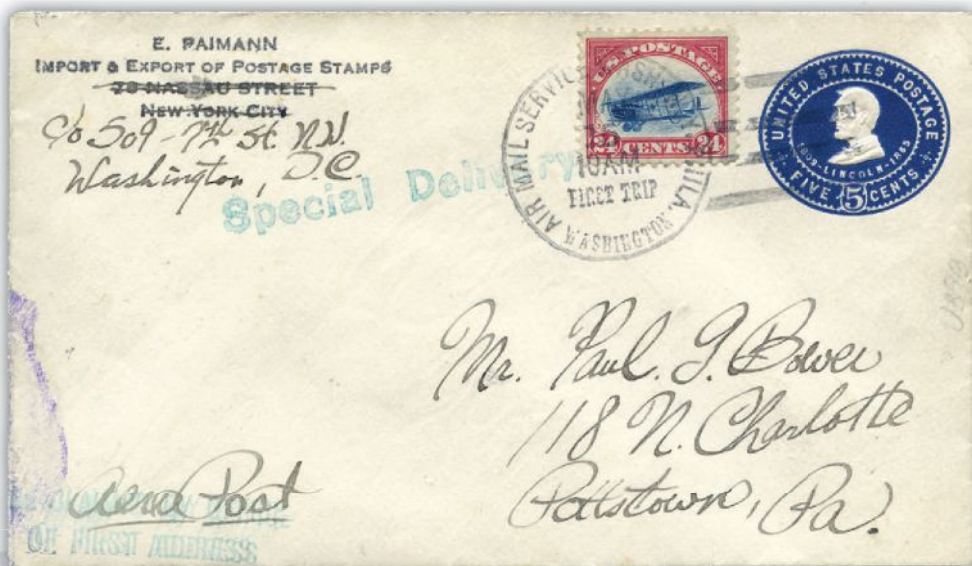 E. PAIMANN
IMPORT & EXPORT OF POSTAGE STAMPS
NASSAU STREET
NEW YORK CITY
c/o 509 - 7th St. N.W.
Washington, D.C.
Special Delivery
U.S. POSTAGE
24 CENTS 24
AIR MAIL SERVICE PHILA.
10AM
FIRST TRIP
WASHINGTON
UNITED STATES POSTAGE
1809 - LINCOLN - 1865
FIVE 5 CENTS
Mr. Paul. G. Bower
118 N. Charlotte
Pottstown, Pa.
Aero Post
OF FIRST ADDRESS